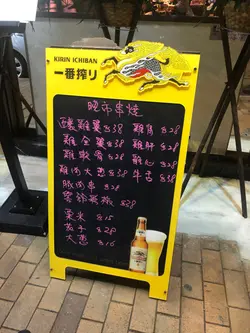 KIRIN ICHIBAN
一番搾り
晚市串燒
釀雞翼 $38 雞髀 $28
雞全翼 $38 雞肝 $28
雞軟骨 $28 雞心 $28
雞肉大蔥 $38 牛舌 $38
豚肉串 $28
$28
粟米 $15
茄子 $28
大蔥 $16